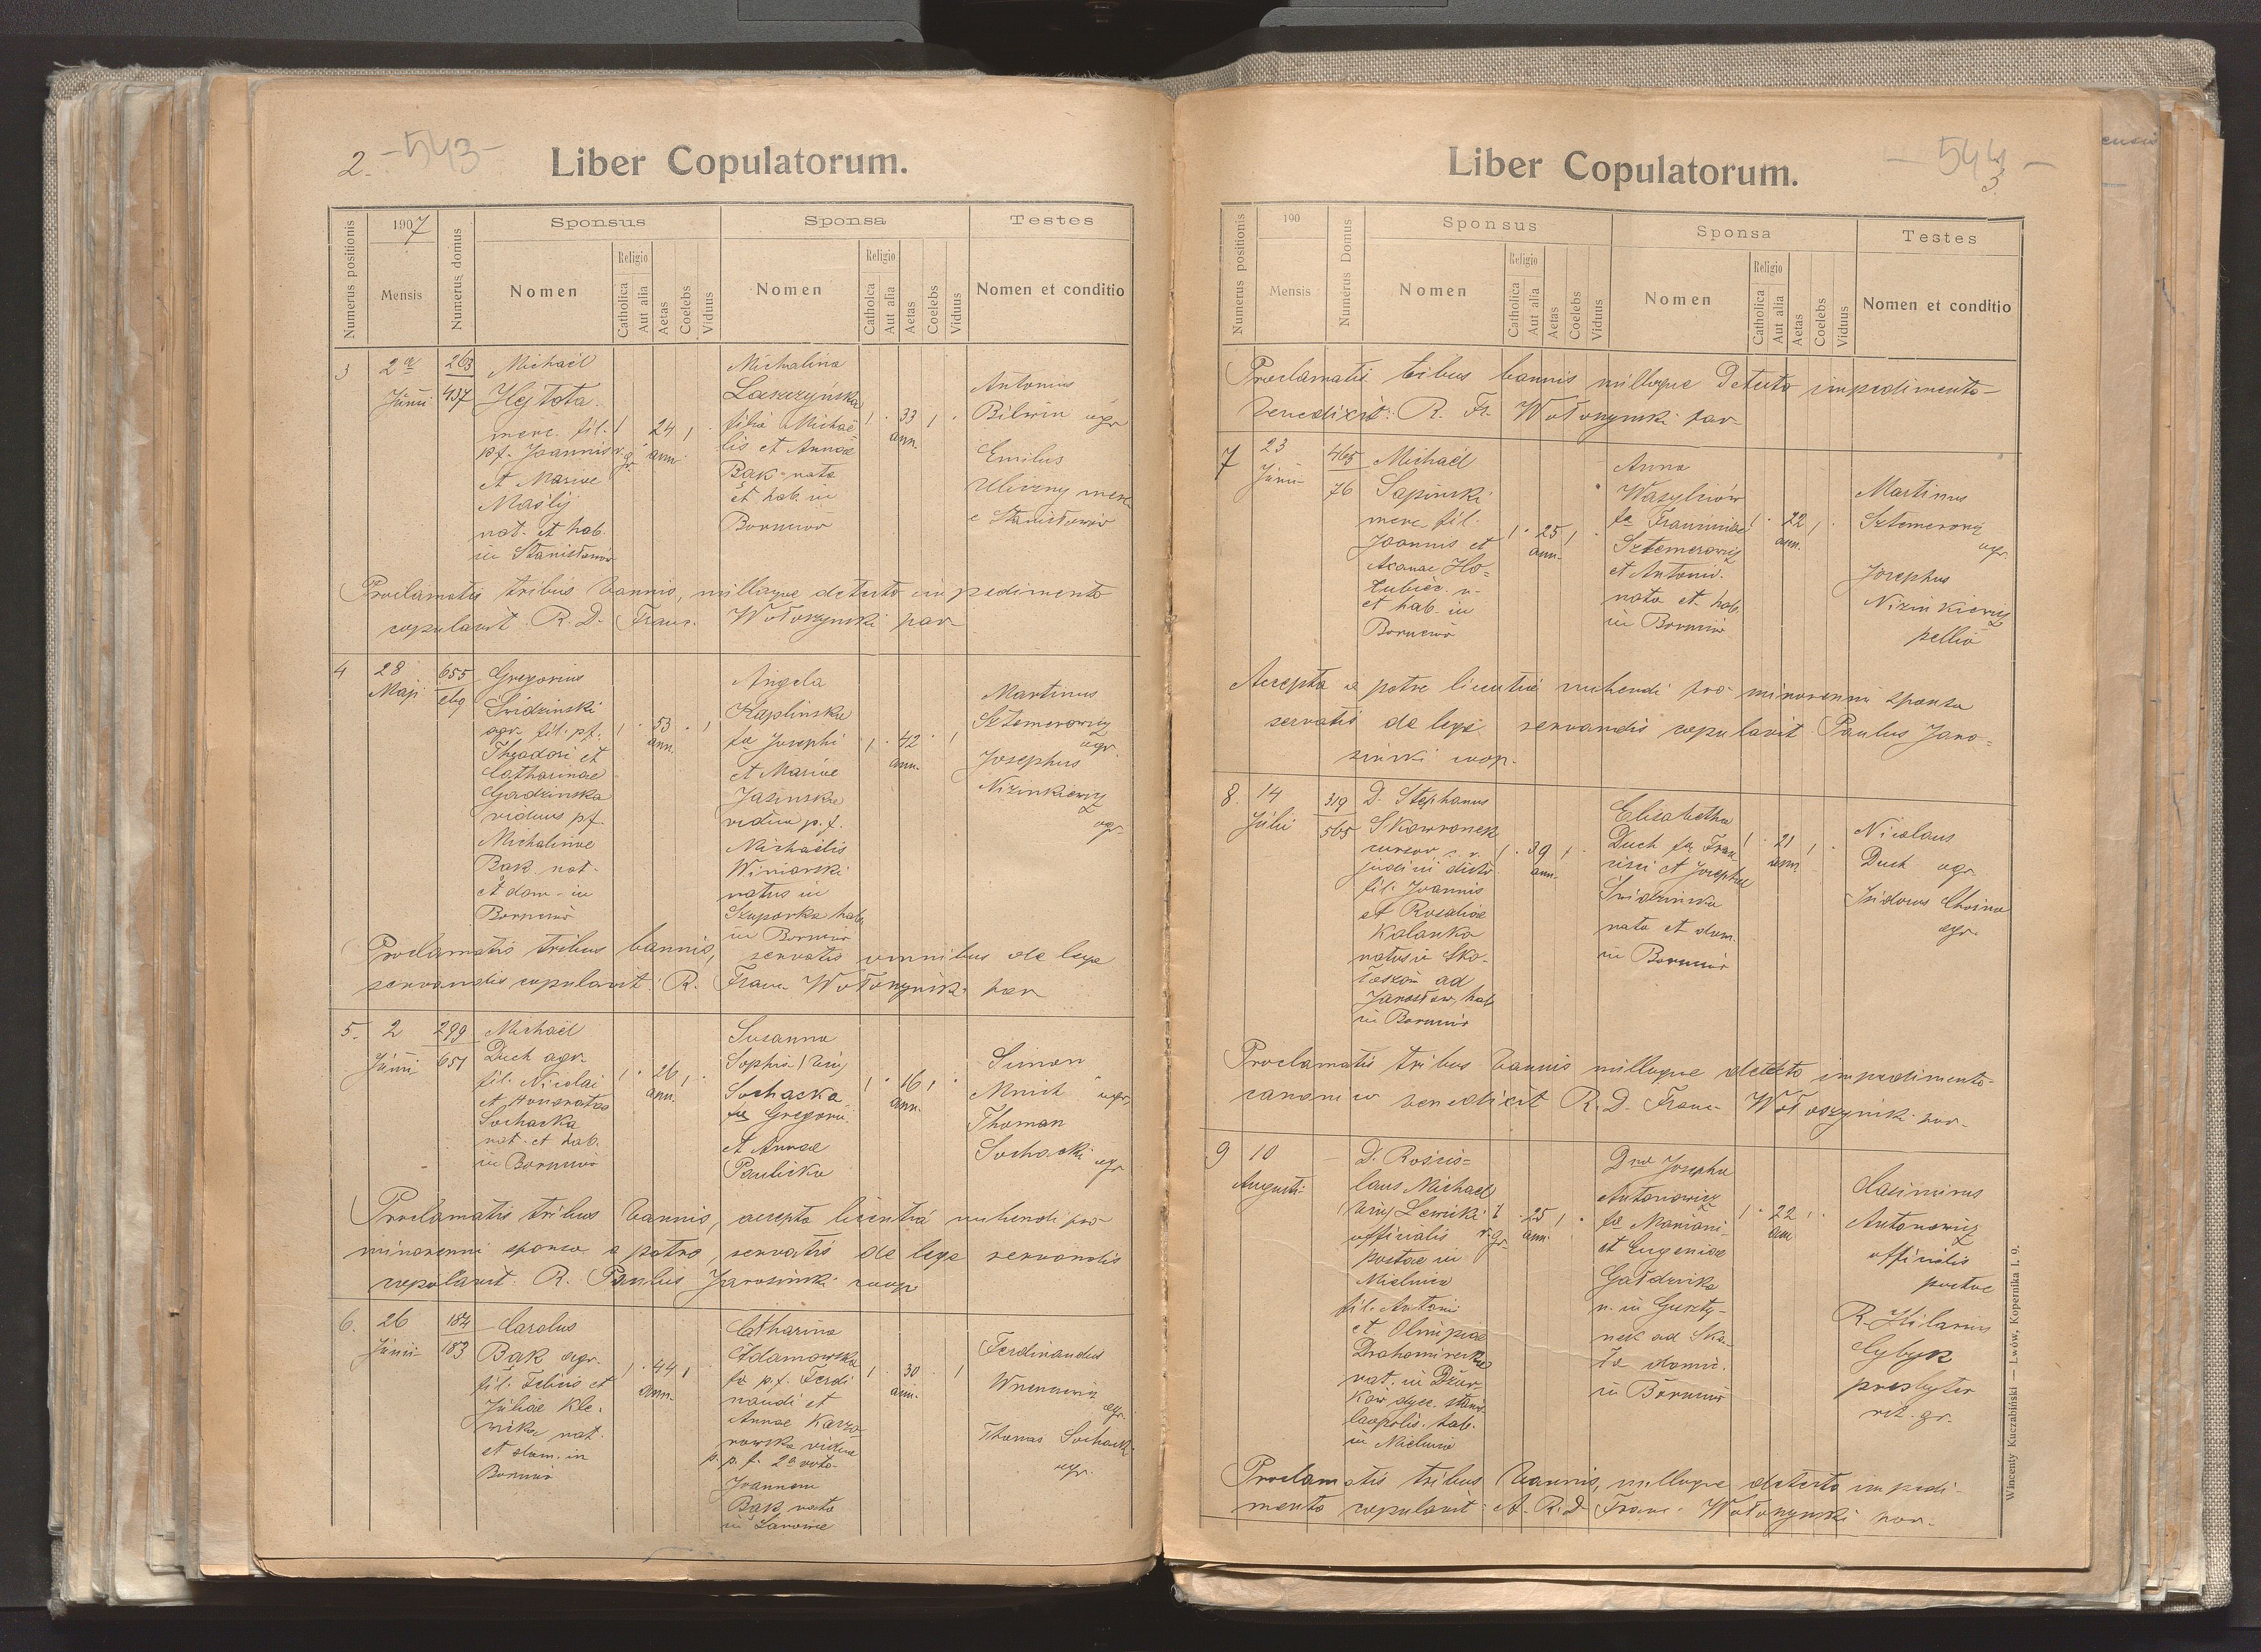 2. -543-
Liber Copulatorum.
Numerus positionis
1907
Mensis
Numerus domus
Sponsus
Nomen
Religio
Catholica
Aut alia
Aetas
Coelebs
Viduus
Sponsa
Nomen
Religio
Catholca
Aut alia
Aetas
Coelebs
Viduus
Testes
Nomen et conditio
3
2a
Junii
263
437
Michaël
Hejtota
merc. fil.
pf. Joannis
et Mariae
Maślij
nat. et hab.
in Stanisławów
24
ann.
Michalina
Laszczyńska
filia Michaë
lis et Annae
Bąk nata
et hab. in
33
ann.
Antonius
Bilwin agr
Emilus
Uliczny merc
e Stanisławów
Proclamatis tribus bannis, nulloque detecto impedimento
copulavit R. D. Franc. Wołoszyński par
4
28
Maji
655
Gregorius
Świdzinski
agr. fil. pf.
Theodori et
Catharinae
Gardzinska
viduus pf.
Michalinae
Bąk nat.
et dom. in
53
ann.
Angela
Kaplinska
fa Josephi
et Mariae
Jasinska
vidua p. f.
Michaëlis
Winiarski
natus in
Szuparka hab.
in
42
ann.
Martinus
Sztemerowicz
agr.
Josephus
Nizinkiewicz
agr.
Proclamatis tribus bannis, servatis omnibus de lege
servandis copulavit R. Franc. Wołoszyński par
5.
2
Junii
299
651
Michaël
Duch agr.
fil. Nicolai
et Honoratae
Sochacka
nat. et hab.
in
26
ann.
Susanna
Sophia (bin)
Sochacka
fa Gregorii
et Annae
Paulicka
16
ann.
Simon
Mnich agr.
Thomas
Sochacki agr
Proclamatis tribus bannis, accepta licentiá nubendi pro
minorenni sponsa a patre, servatis de lege servandis
copulavit R. Paulus Jarosinski coop
6.
26
Junii
184
183
Carolus
Bąk agr.
fil. Felicis et
Juliae Kle-
nika nat.
et dom. in
44
ann.
Catharina
Adamowska
fa p. f. Ferdi
nandi et
Annae Karzo
nowska vidua
p. p. f. 2o voto
Joannem
Bąk nata
in Łanowce
30
ann.
Ferdinandus
agr.
Thomas Sochacki
agr.
- 544 -
3.
Liber Copulatorum.
Numerus positionis
190
Mensis
Numerus Domus
Sponsus
Nomen
Religio
Catholica
Aut alia
Aetas
Coelebs
Viduus
Sponsa
Nomen
Religio
Catholica
Aut alia
Aetas
Coelebs
Viduus
Testes
Nomen et conditio
Proclamatis tribus bannis nulloque detecto impedimento
benedixit: R. Fr. Wołoszynski par
7
23
Junii
465
76
Michaël
Sapinski
merc. fil.
Joannis et
Ho-
łubiec n.
et hab. in
25
ann.
Anna
Wasylciów
fa Franciscae
Sztemerowicz
et Antonii
nata et hab.
in
22
ann.
Martinus
Sztemerowicz
agr.
Josephus
Nizinkiewicz
pellio
Accepta a patre licentia nubendi pro minorenni sponsa
servatis de lege servandis copulavit Paulus Jaro-
sinski coop.
8.
14
Julii
319
565
D. Stephanus
Skowronek
cursor c. r.
judicii distr.
fil. Joannis
et Rosaliae
Kalanka
natus in Sko-
łoszów ad
Jarosław, hab
in
39
ann.
Elisabetha
Duch fa Fran
cisci et Josephae
Świdzinska
nata et dom.
in
21
ann.
Nicolaus
Duch agr.
Isidorus Choina
agr.
Proclamatis tribus bannis nulloque detecto impedimento
canonico benedixit R. D. Franc. Wołoszyński par.
9
10
Augusti
D. Rościs-
laus Michaël
(bin) Lewicki
officialis
postae in
Mielnica
fil. Antoni
et Olimpiae
Drohomirecka
nat. in Dżur-
ków dyec. stanis
laopolis. hab.
in Mielnica
r. gr.
25
ann.
Dna Josepha
Antonowicz
fa Mariani
et Eugeniae
Gałdzinka
n. in Guszty-
nek ad Ska-
ła domic.
in
22
ann
Casimirus
Antonowicz
officialis
postae
R. Hilarius
Cybyk
presbyter
rit. gr.
Proclamatis tribus bannis, nulloque detecto impedi-
mento copulavit A. R. D. Franc. Wołoszynski par.
Wincenty Kuczabiński — Lwów, Kopernika l. 9.